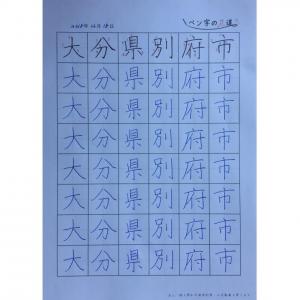 ペン字の
大分県別府市
大分県別府市
大分県別府市
大分県別府市
大分県別府市
大分県別府市
大分県別府市
大分県別府市